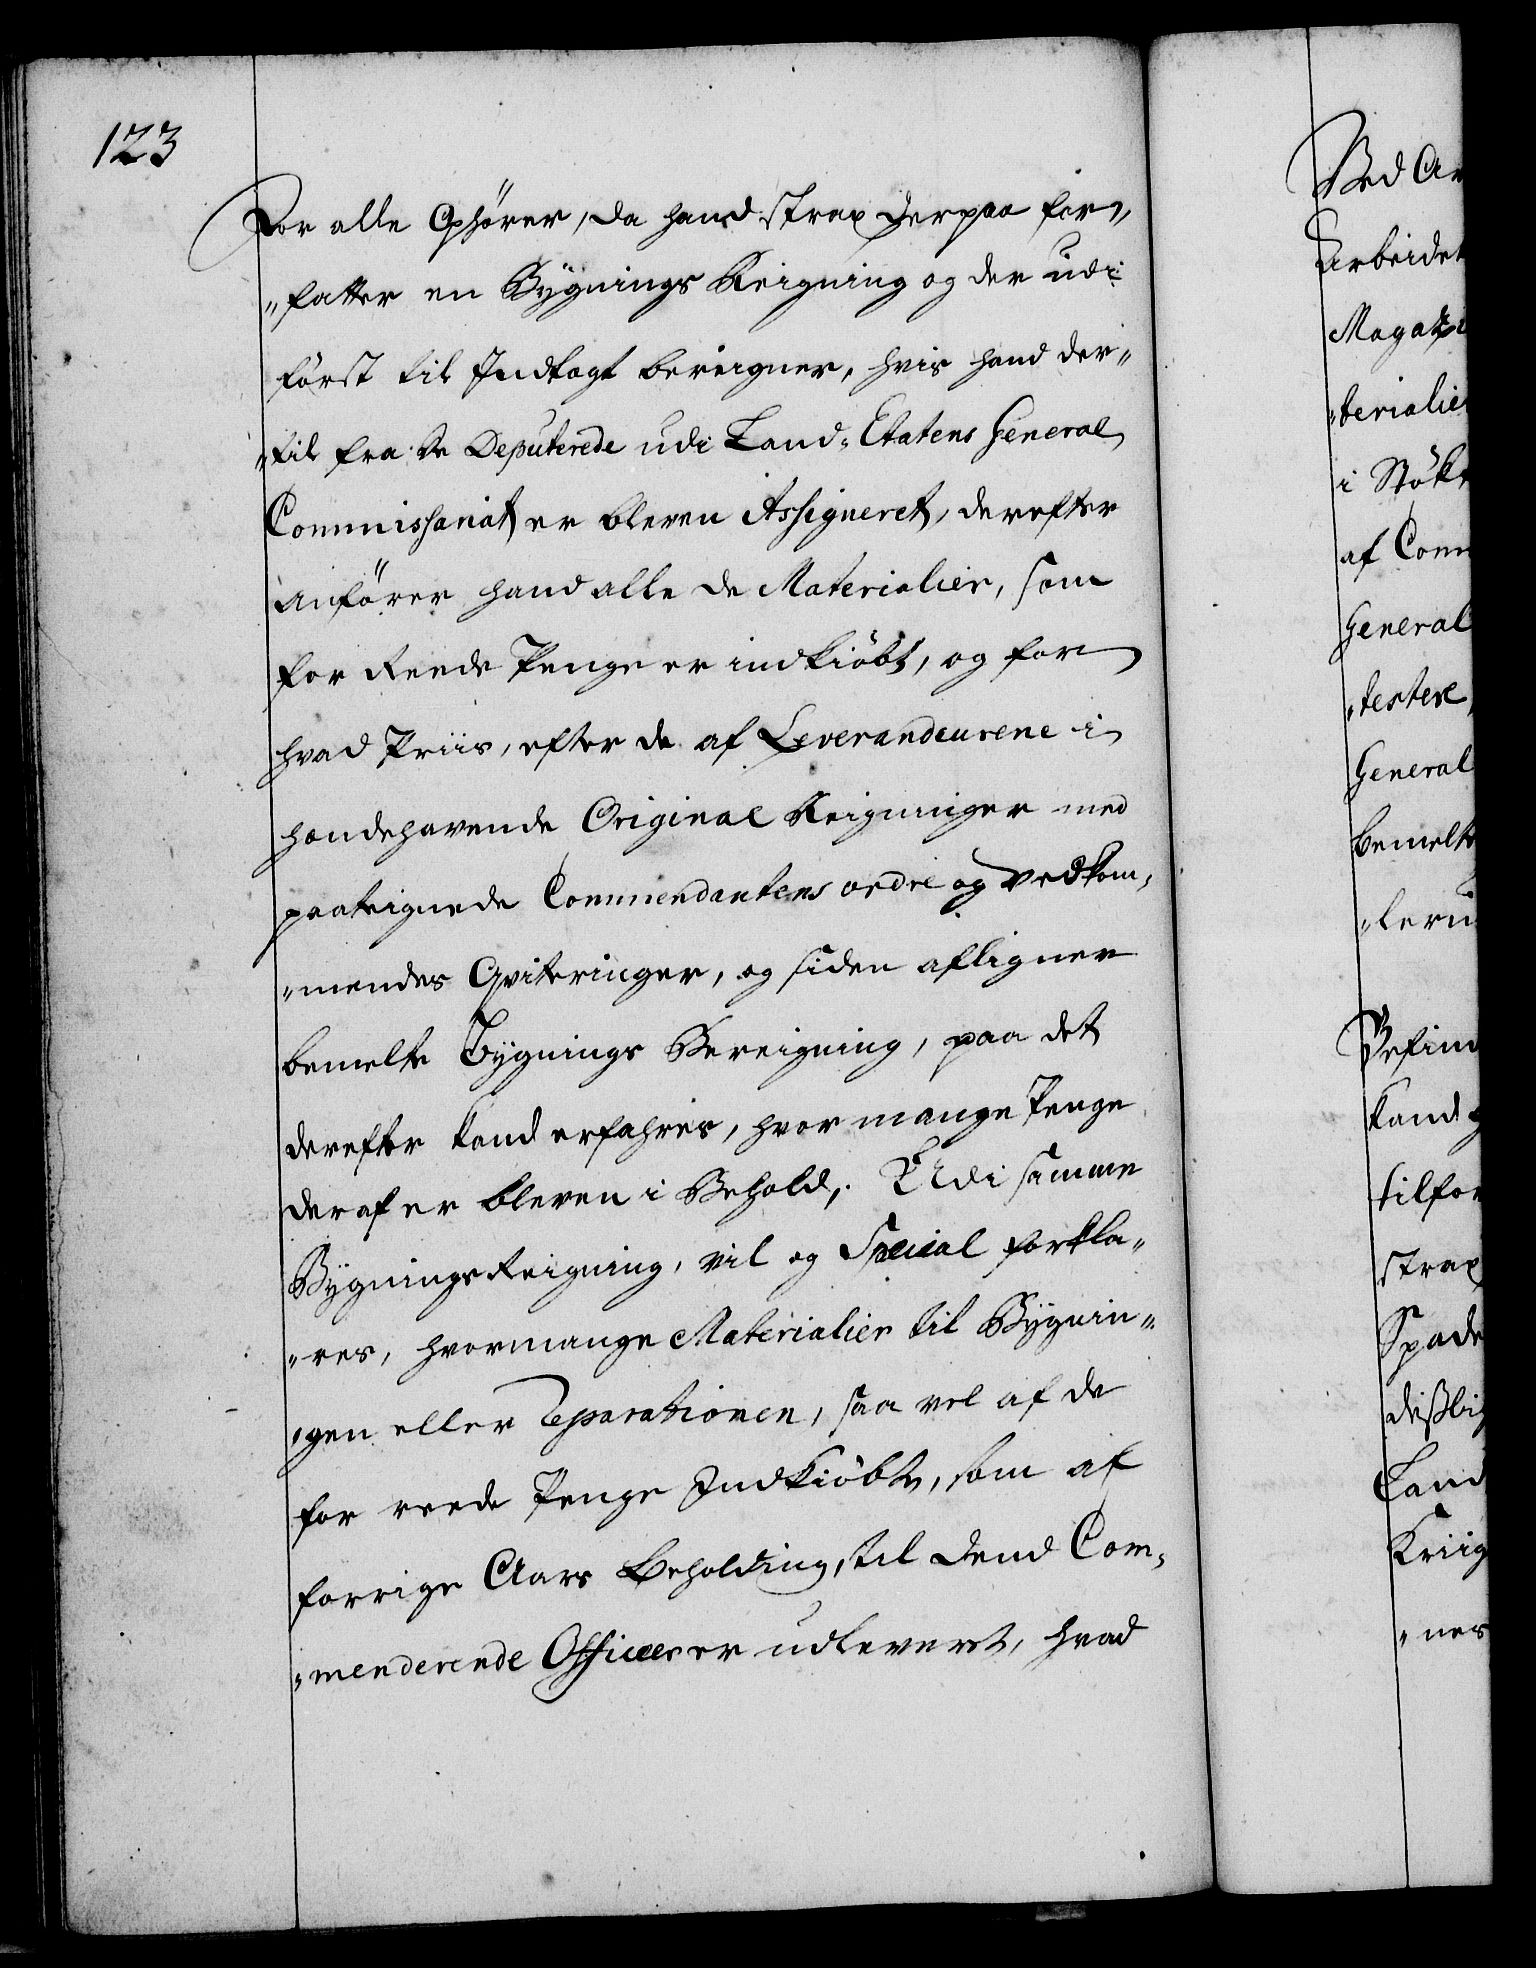 123
For alle Ophörer, da hand strax derpaa for„
„fatter en Bygnings Reigning og der udi
först til Indtagt bereigner, hvis hand der„
„til fra de Deputerede udi Land-Etatens General
Commissariat er bleven Assigneret, derefter
anförer hand alle de Materialier, som
for Reede Penge er indkiöbt, og for
hvad Priis, efter de af Leverandeurene i
hændehavende Original Reigninger med
paateignede Commendantens ordre og vedkom„
„mendes Qviteringer, og siden afligner
bemelte Bygnings Bereigning, paa det
derefter kand erfahres, hvor mange Penge
deraf er bleven i Behold,. Udi samme
Bygnings Reigning, vil og Special forkla„
„res, hvormange Materialier til Bygnin„
„gen eller Reparationen, saa vel af de
for reede Penge Indkiöbte, som af
forrige Aars Beholdning, til dend Com„
„menderende Officeer er udleveret, hvad
Ved Ar
Arbeidet
Magazi
„terialie
i Stökk
af Com
General
„testere
General
bemelte
Befind
kand
tilfor
strax
Spade
Land
Kriig
„nes